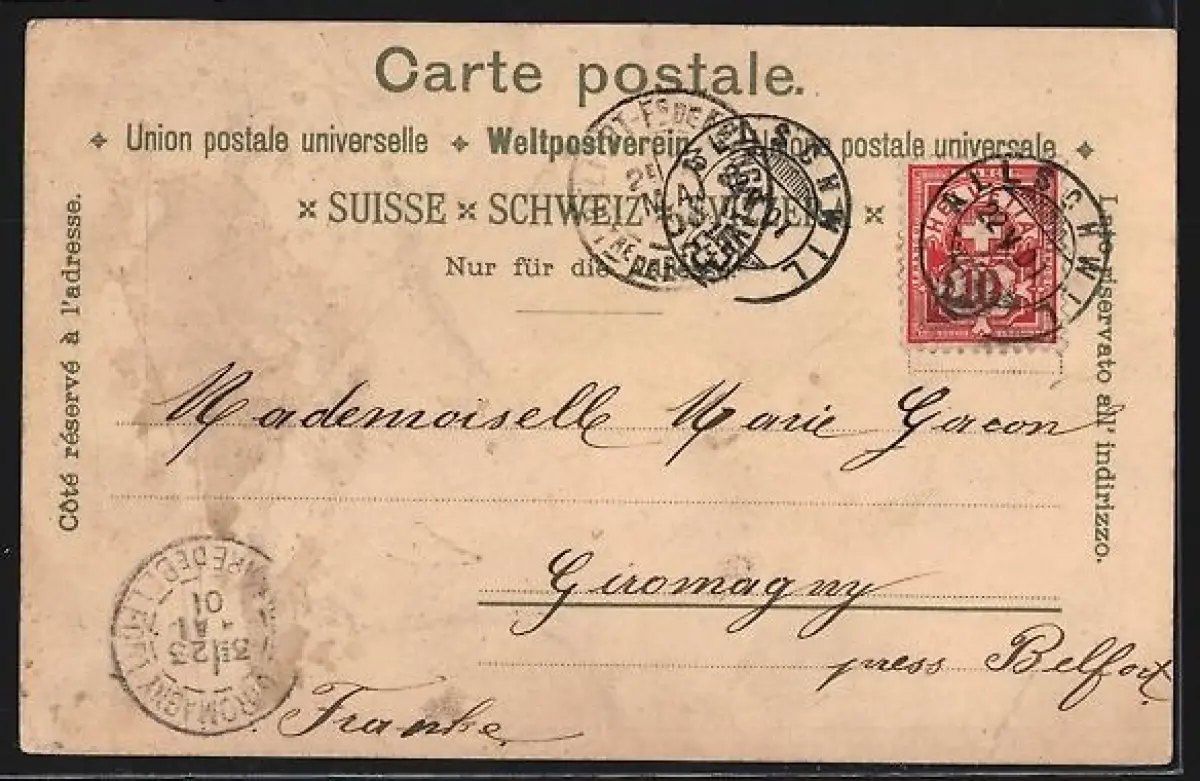 Carte postale.
Union postale universelle Weltpostverein postale universale
SUISSE SCHWEIZ
Nur für die
Côté réservé à l'adresse.
Lato riservato all' indirizzo.
ALLSCHWIL
HELVETIA
10
Mademoiselle Marie Gacon
Giromagny
press Belfort
Franke
GIROMAGNY
3E 23
01